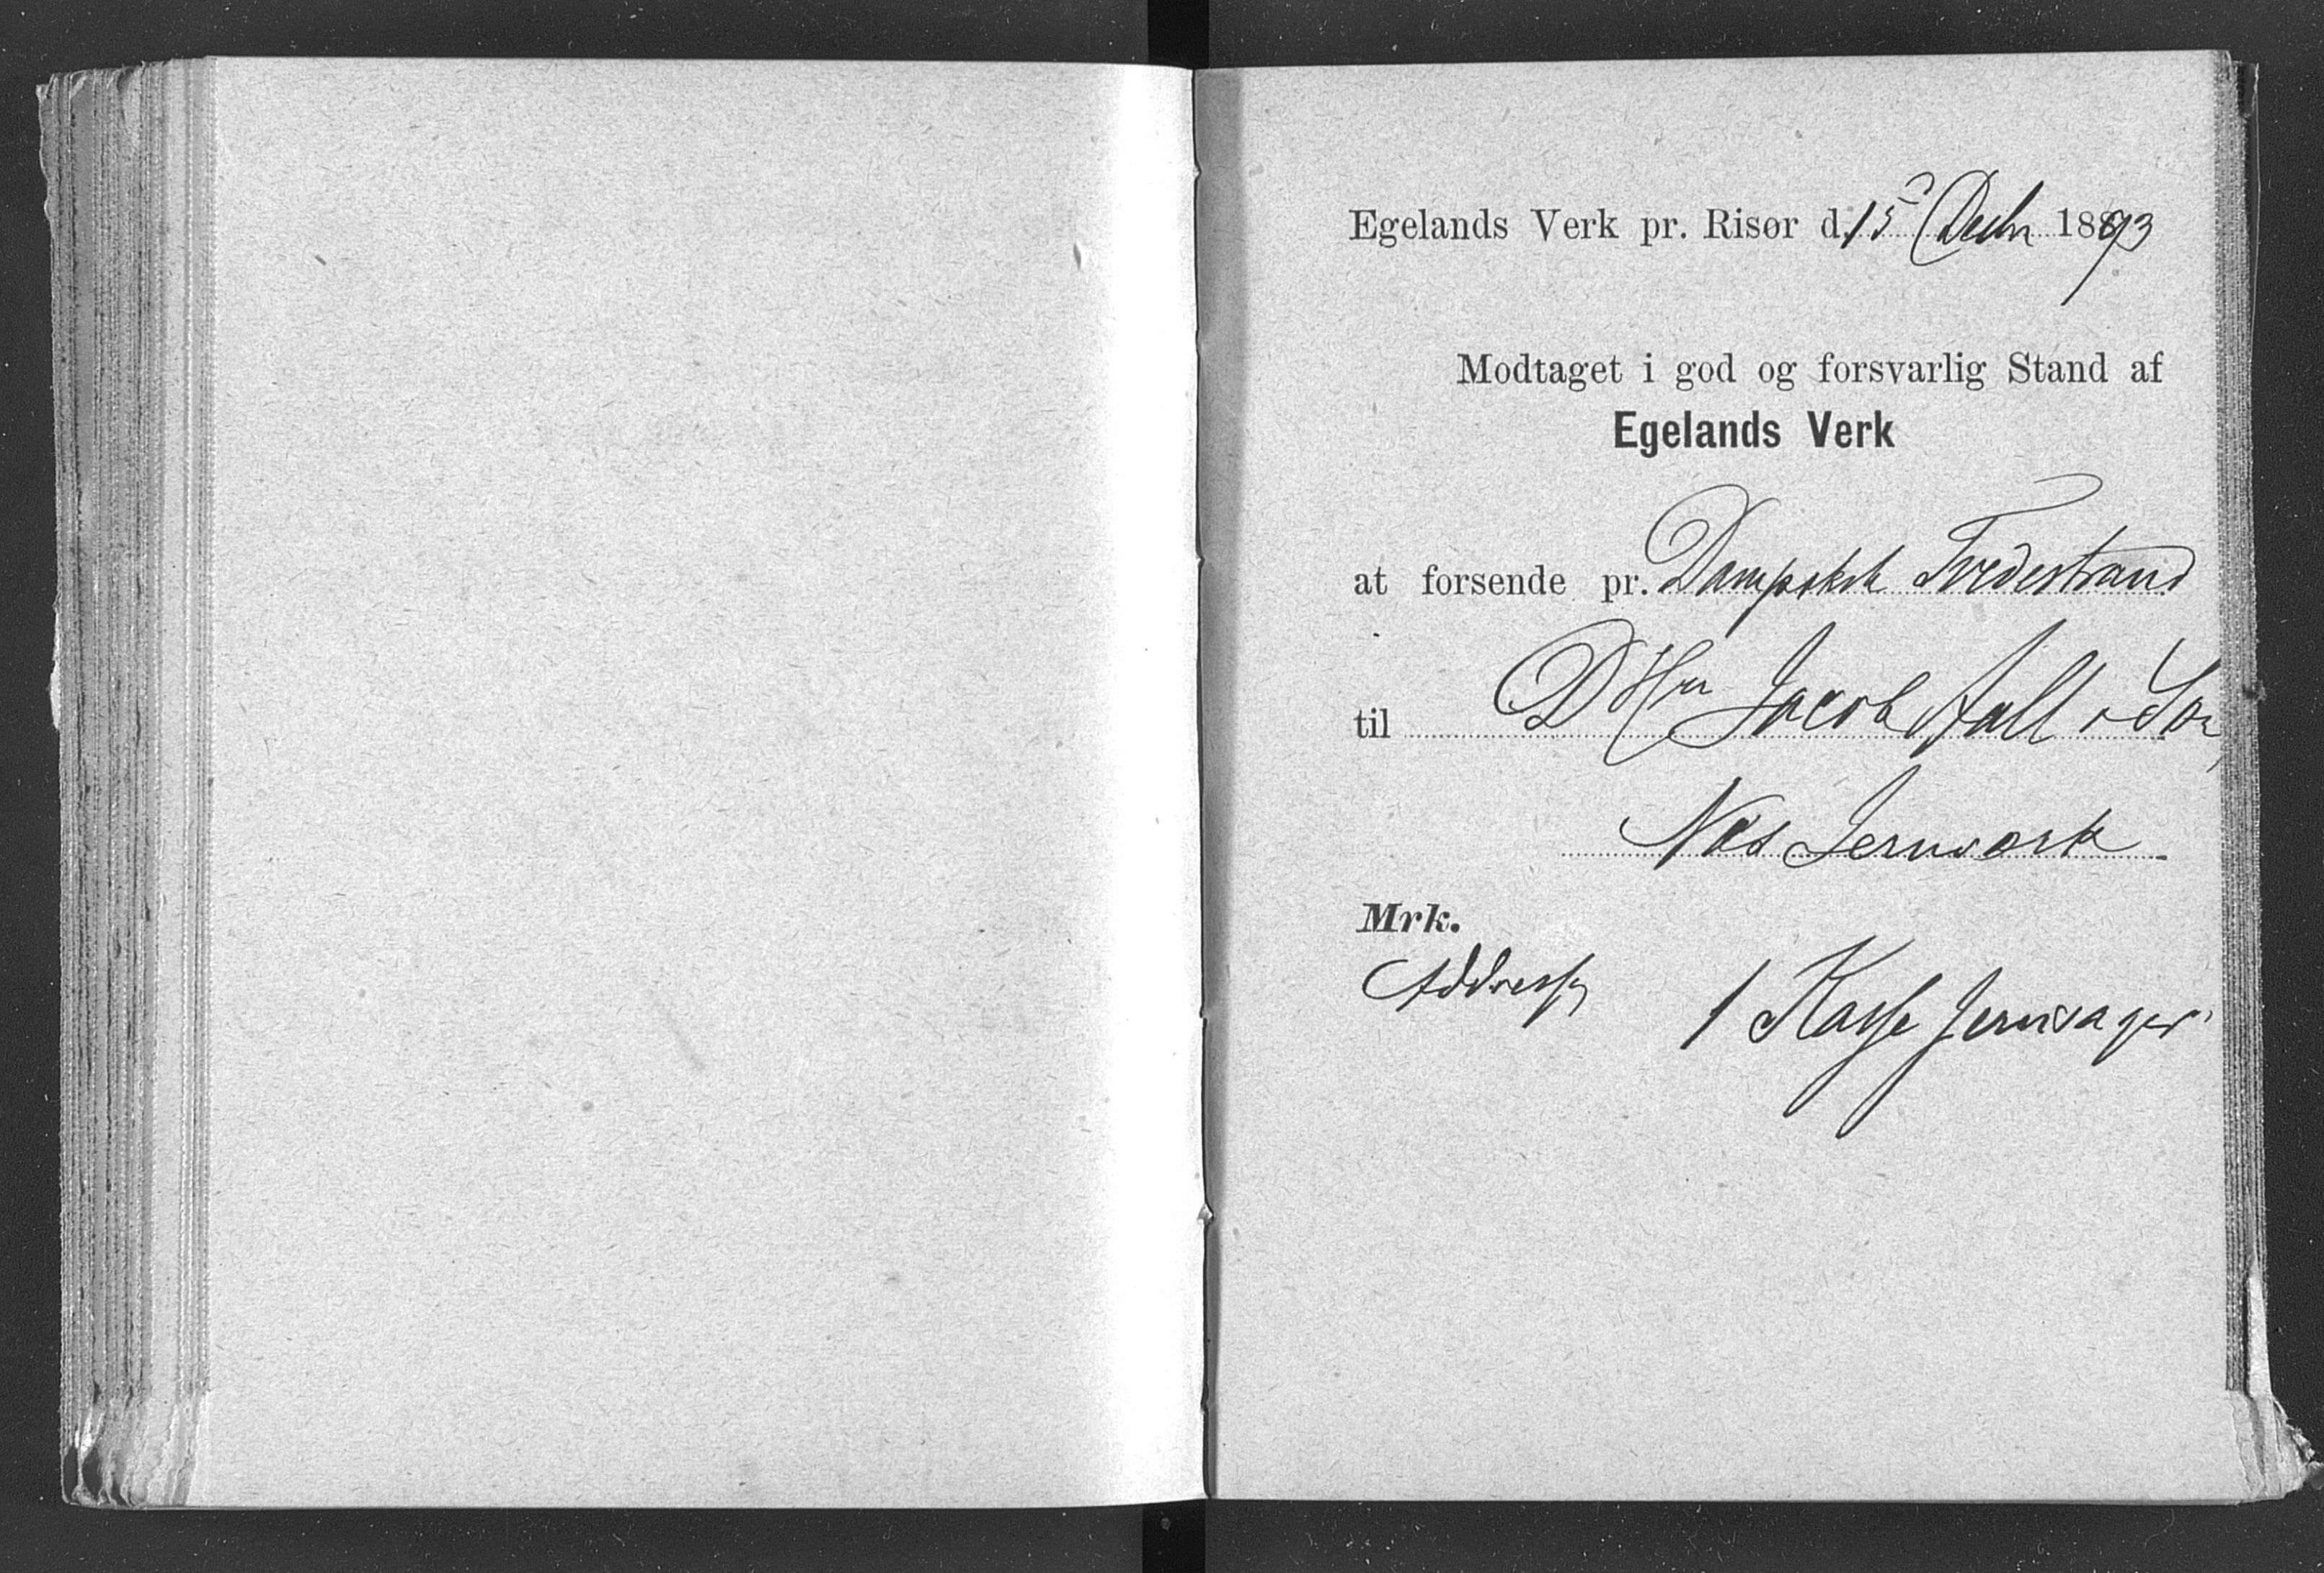 Egelands Verk pr. Risør d. 15 Decbr 1893
Modtaget i god og forsvarlig Stand af
Egelands Verk
at forsende pr. Dampskib Tvedestrand
til D Hrr Jacob Aall & Søn,
Næs Jernværk
Mrk.
Addresse
1 Kasse Jernvager